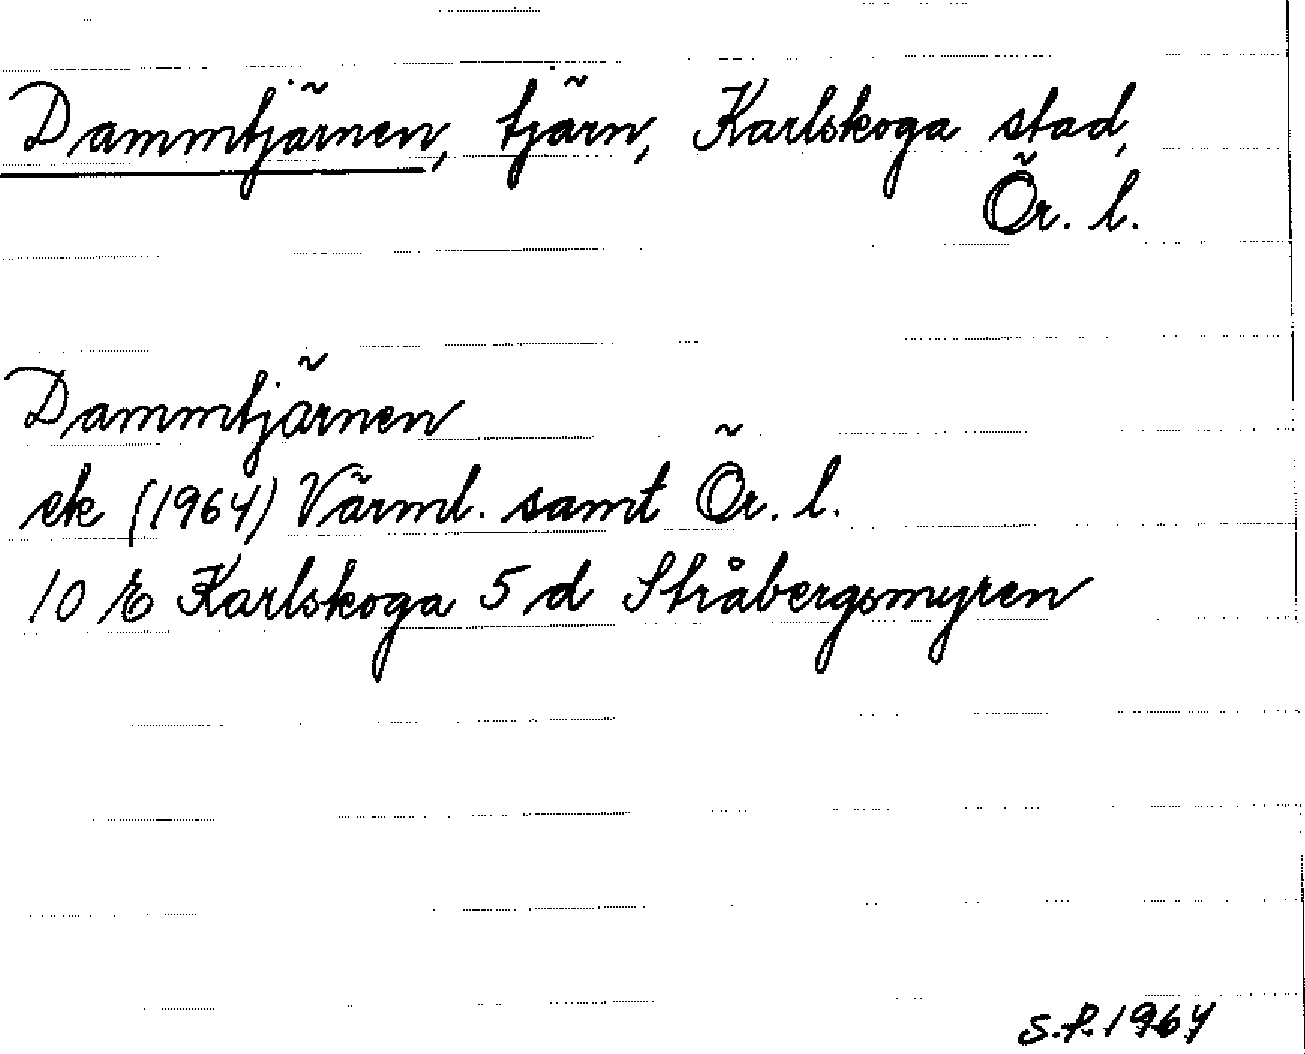 Dammtjärnen, tjärn, Karlskoga stad,
Ör. l.
Dammtjärnen
ek (1964) Värml. samt Ör. l.
10 E Karlskoga 5 d Stråbergsmyren
S.P. 1964